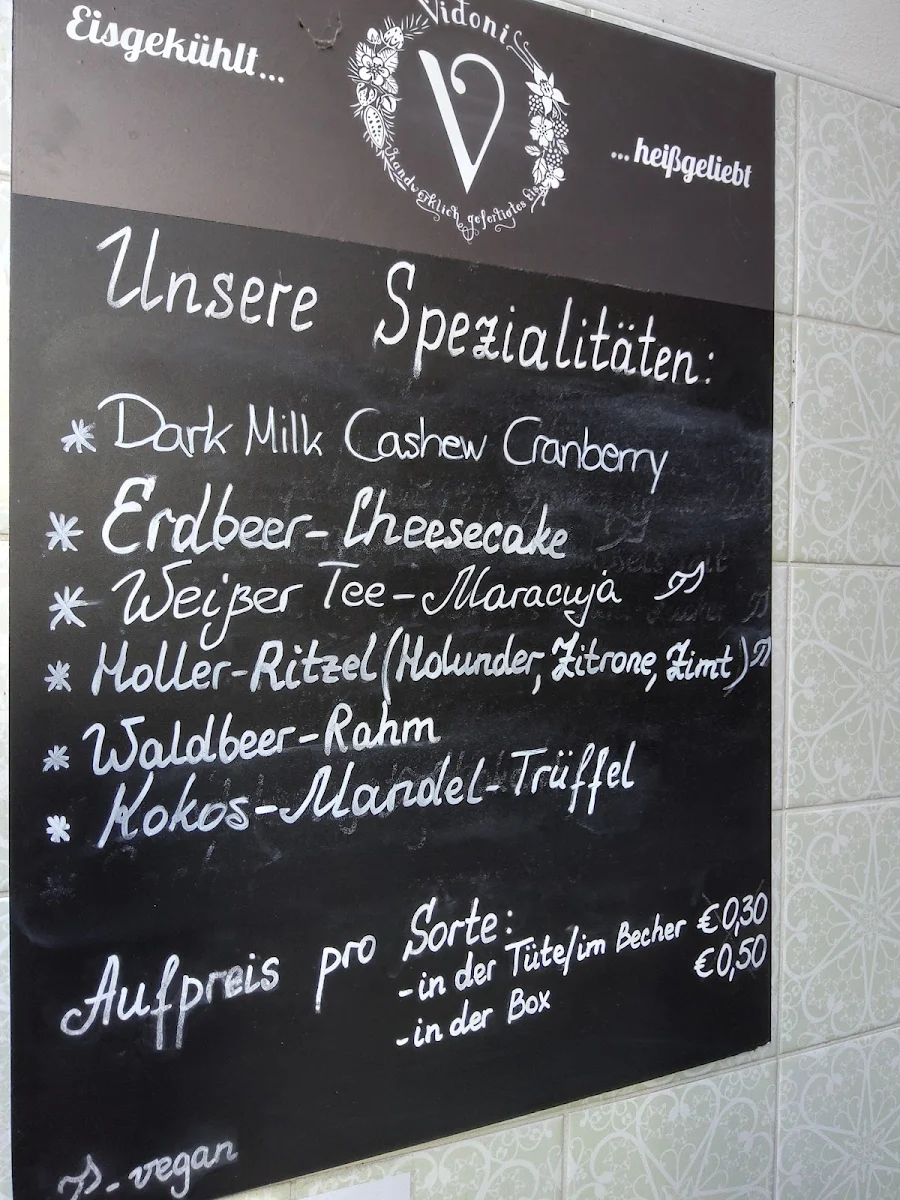 Eisgekühlt...
Vidoni
V
handwerklich gefertigtes Eis
...heißgeliebt
Unsere Spezialitäten:
* Dark Milk Cashew Cranberry
* Erdbeer-Cheesecake
* Weißer Tee-Maracuja
* Holler-Ritzel (Holunder, Zitrone, Zimt)
* Waldbeer-Rahm
* Kokos-Mandel-Trüffel
Aufpreis pro Sorte:
-in der Tüte/im Becher €0,30
-in der Box €0,50
- vegan